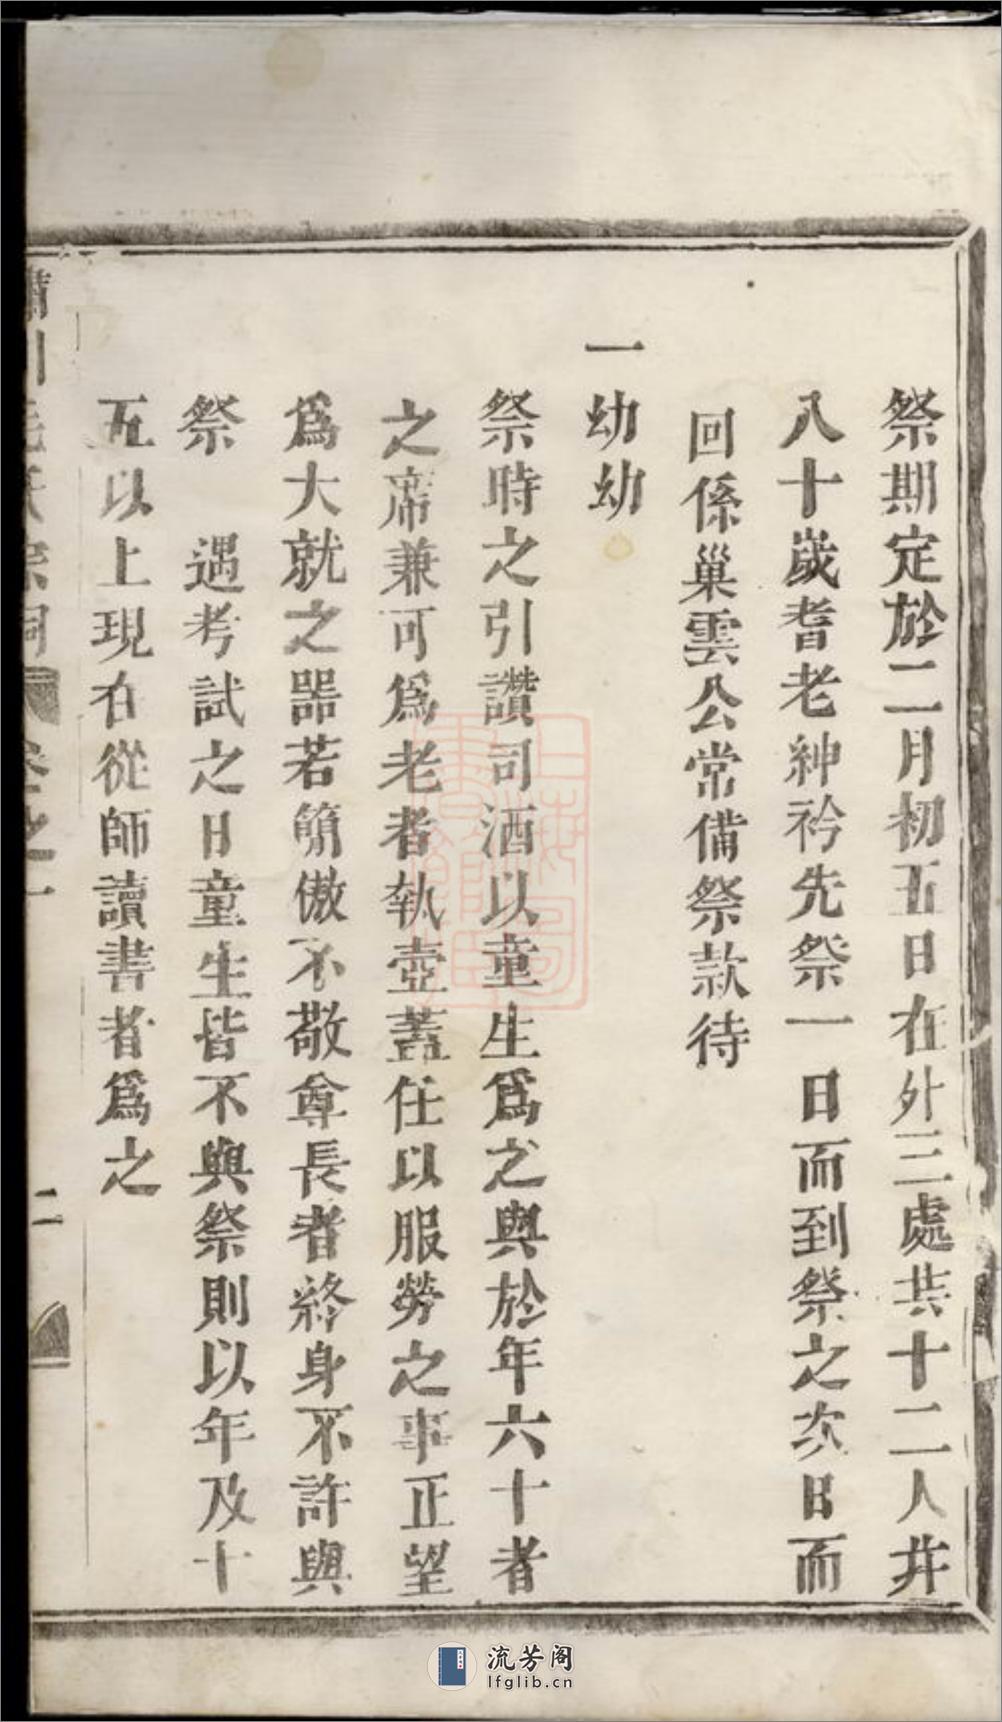 祭期定於二月初五日在外三處共十二人并
八十歲耆老紳衿先祭一日而到祭之次日而
回係巢雲公常備祭款待
一幼幼
祭時之引讚司酒以童生爲之與於年六十者
之席兼可爲老者執壺蓋任以服勞之事正望
爲大就之器若簡傲不敬尊長者終身不許與
祭　遇考試之日童生皆不與祭則以年及十
五以上現在從師讀書者爲之
毛氏宗祠 卷之一 二
上海圖書館藏
流芳阁
lfglib.cn